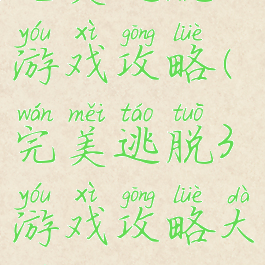 yóu xì gōng lüè
游戏攻略(
wán měi táo tuō
完美逃脱3
yóu xì gōng lüè dà
游戏攻略大